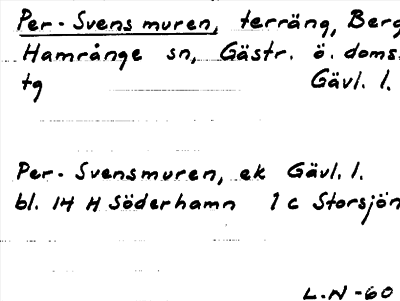 Per-Svensmuren, terräng, Berg
Hamrånge sn, Gästr. ö. doms.
tg Gävl. l.
Per-Svensmuren, ek Gävl. l.
bl. 14 H Söderhamn 1 c Storsjön
L.N -60